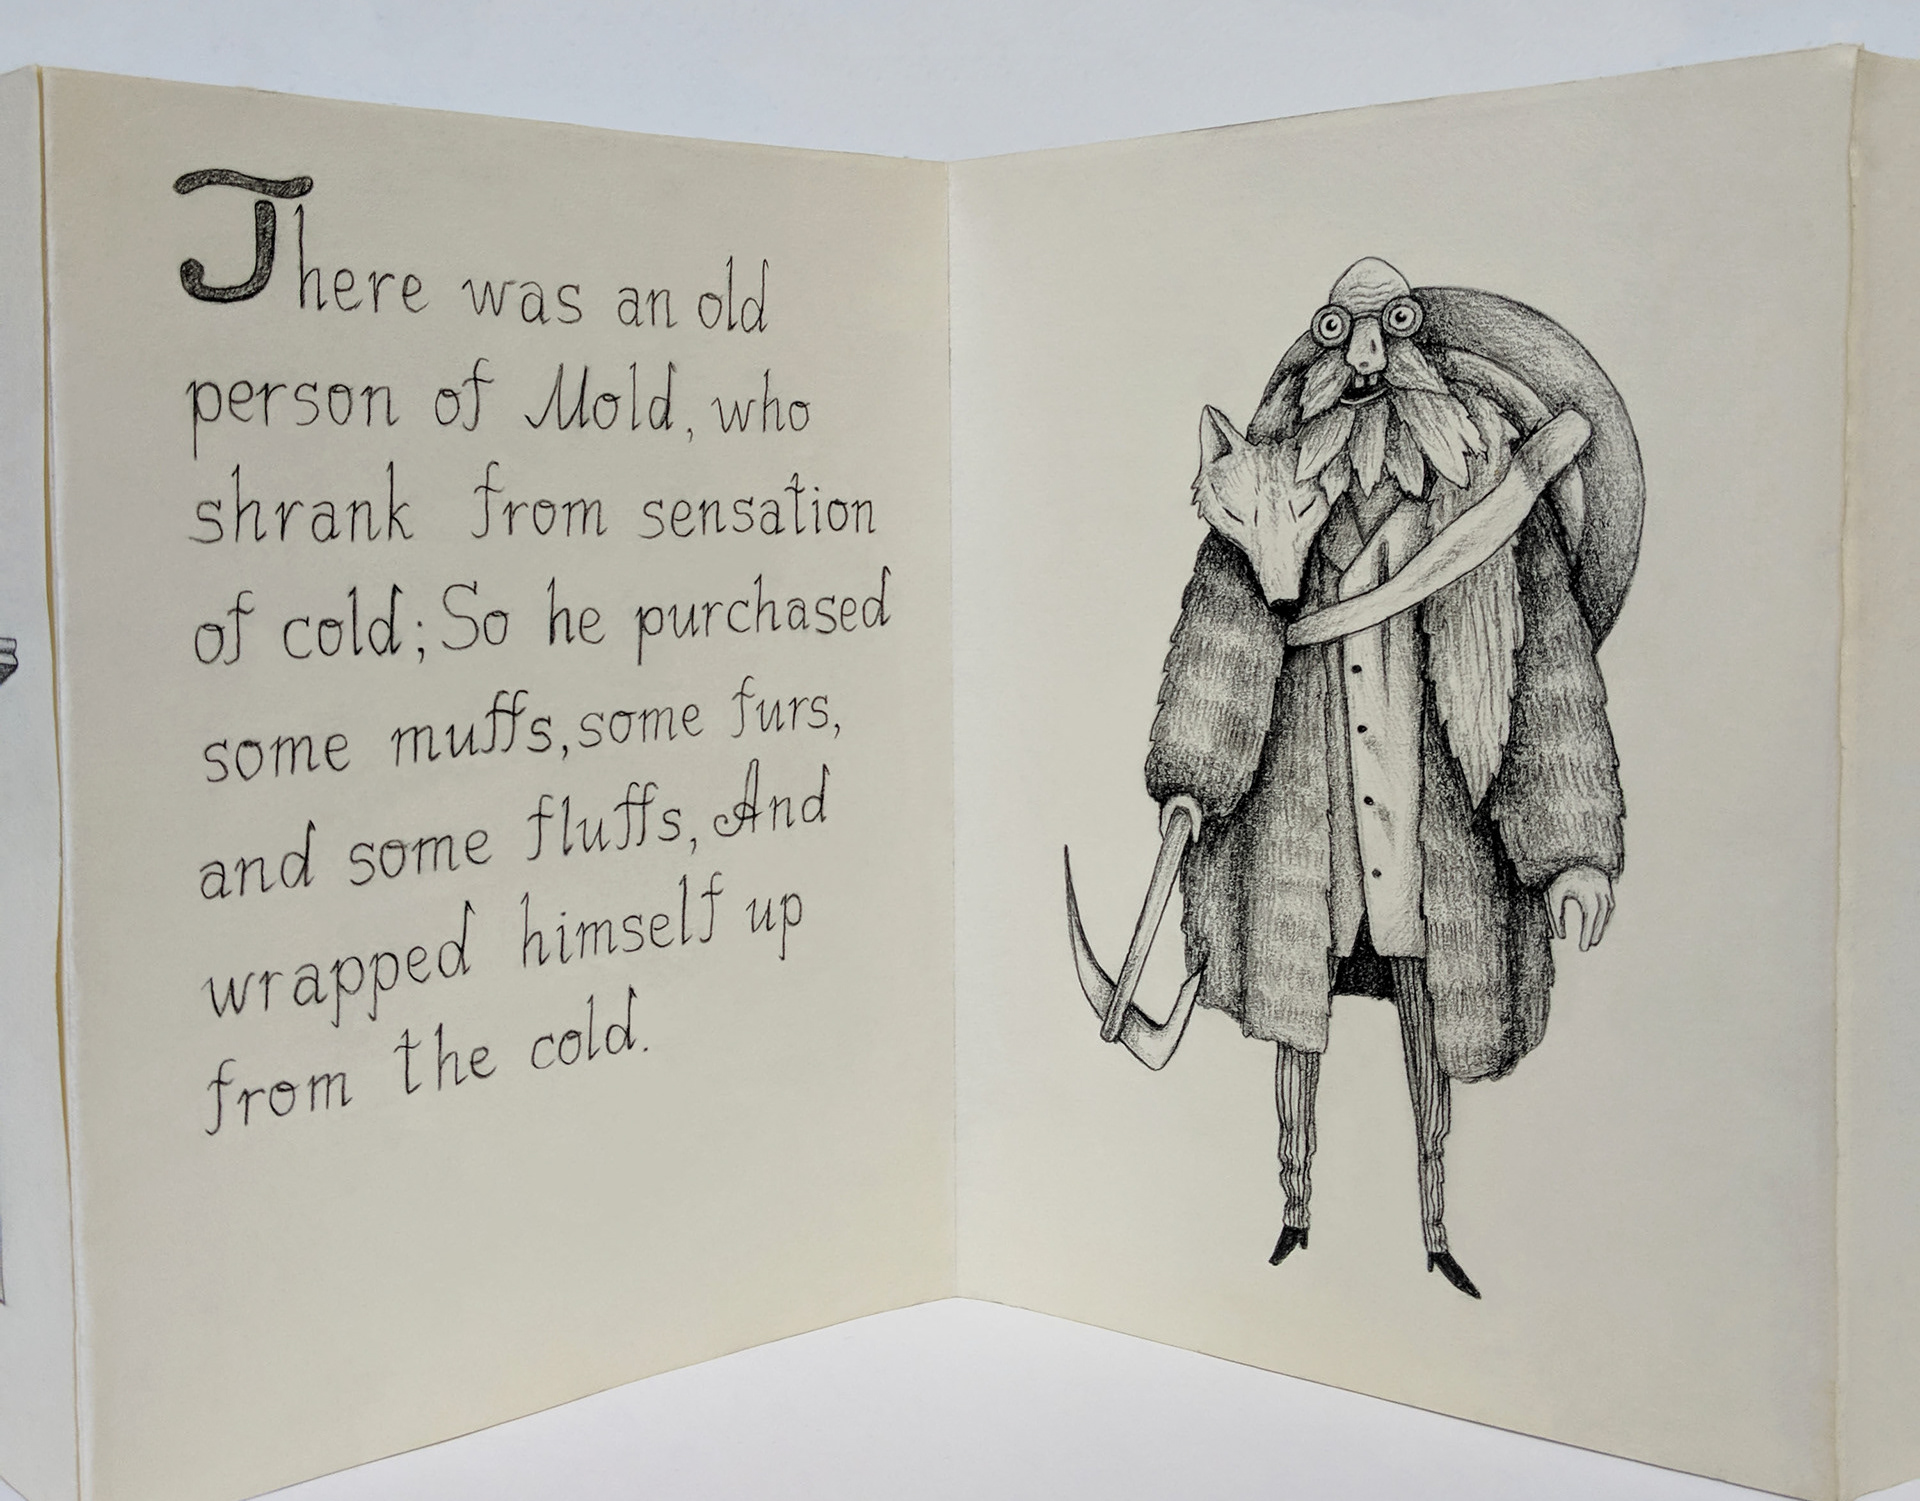 There was an old
person of Mold, who
shrank from sensation
of cold; So he purchased
some muffs, some furs,
and some fluffs, And
wrapped himself up
from the cold.